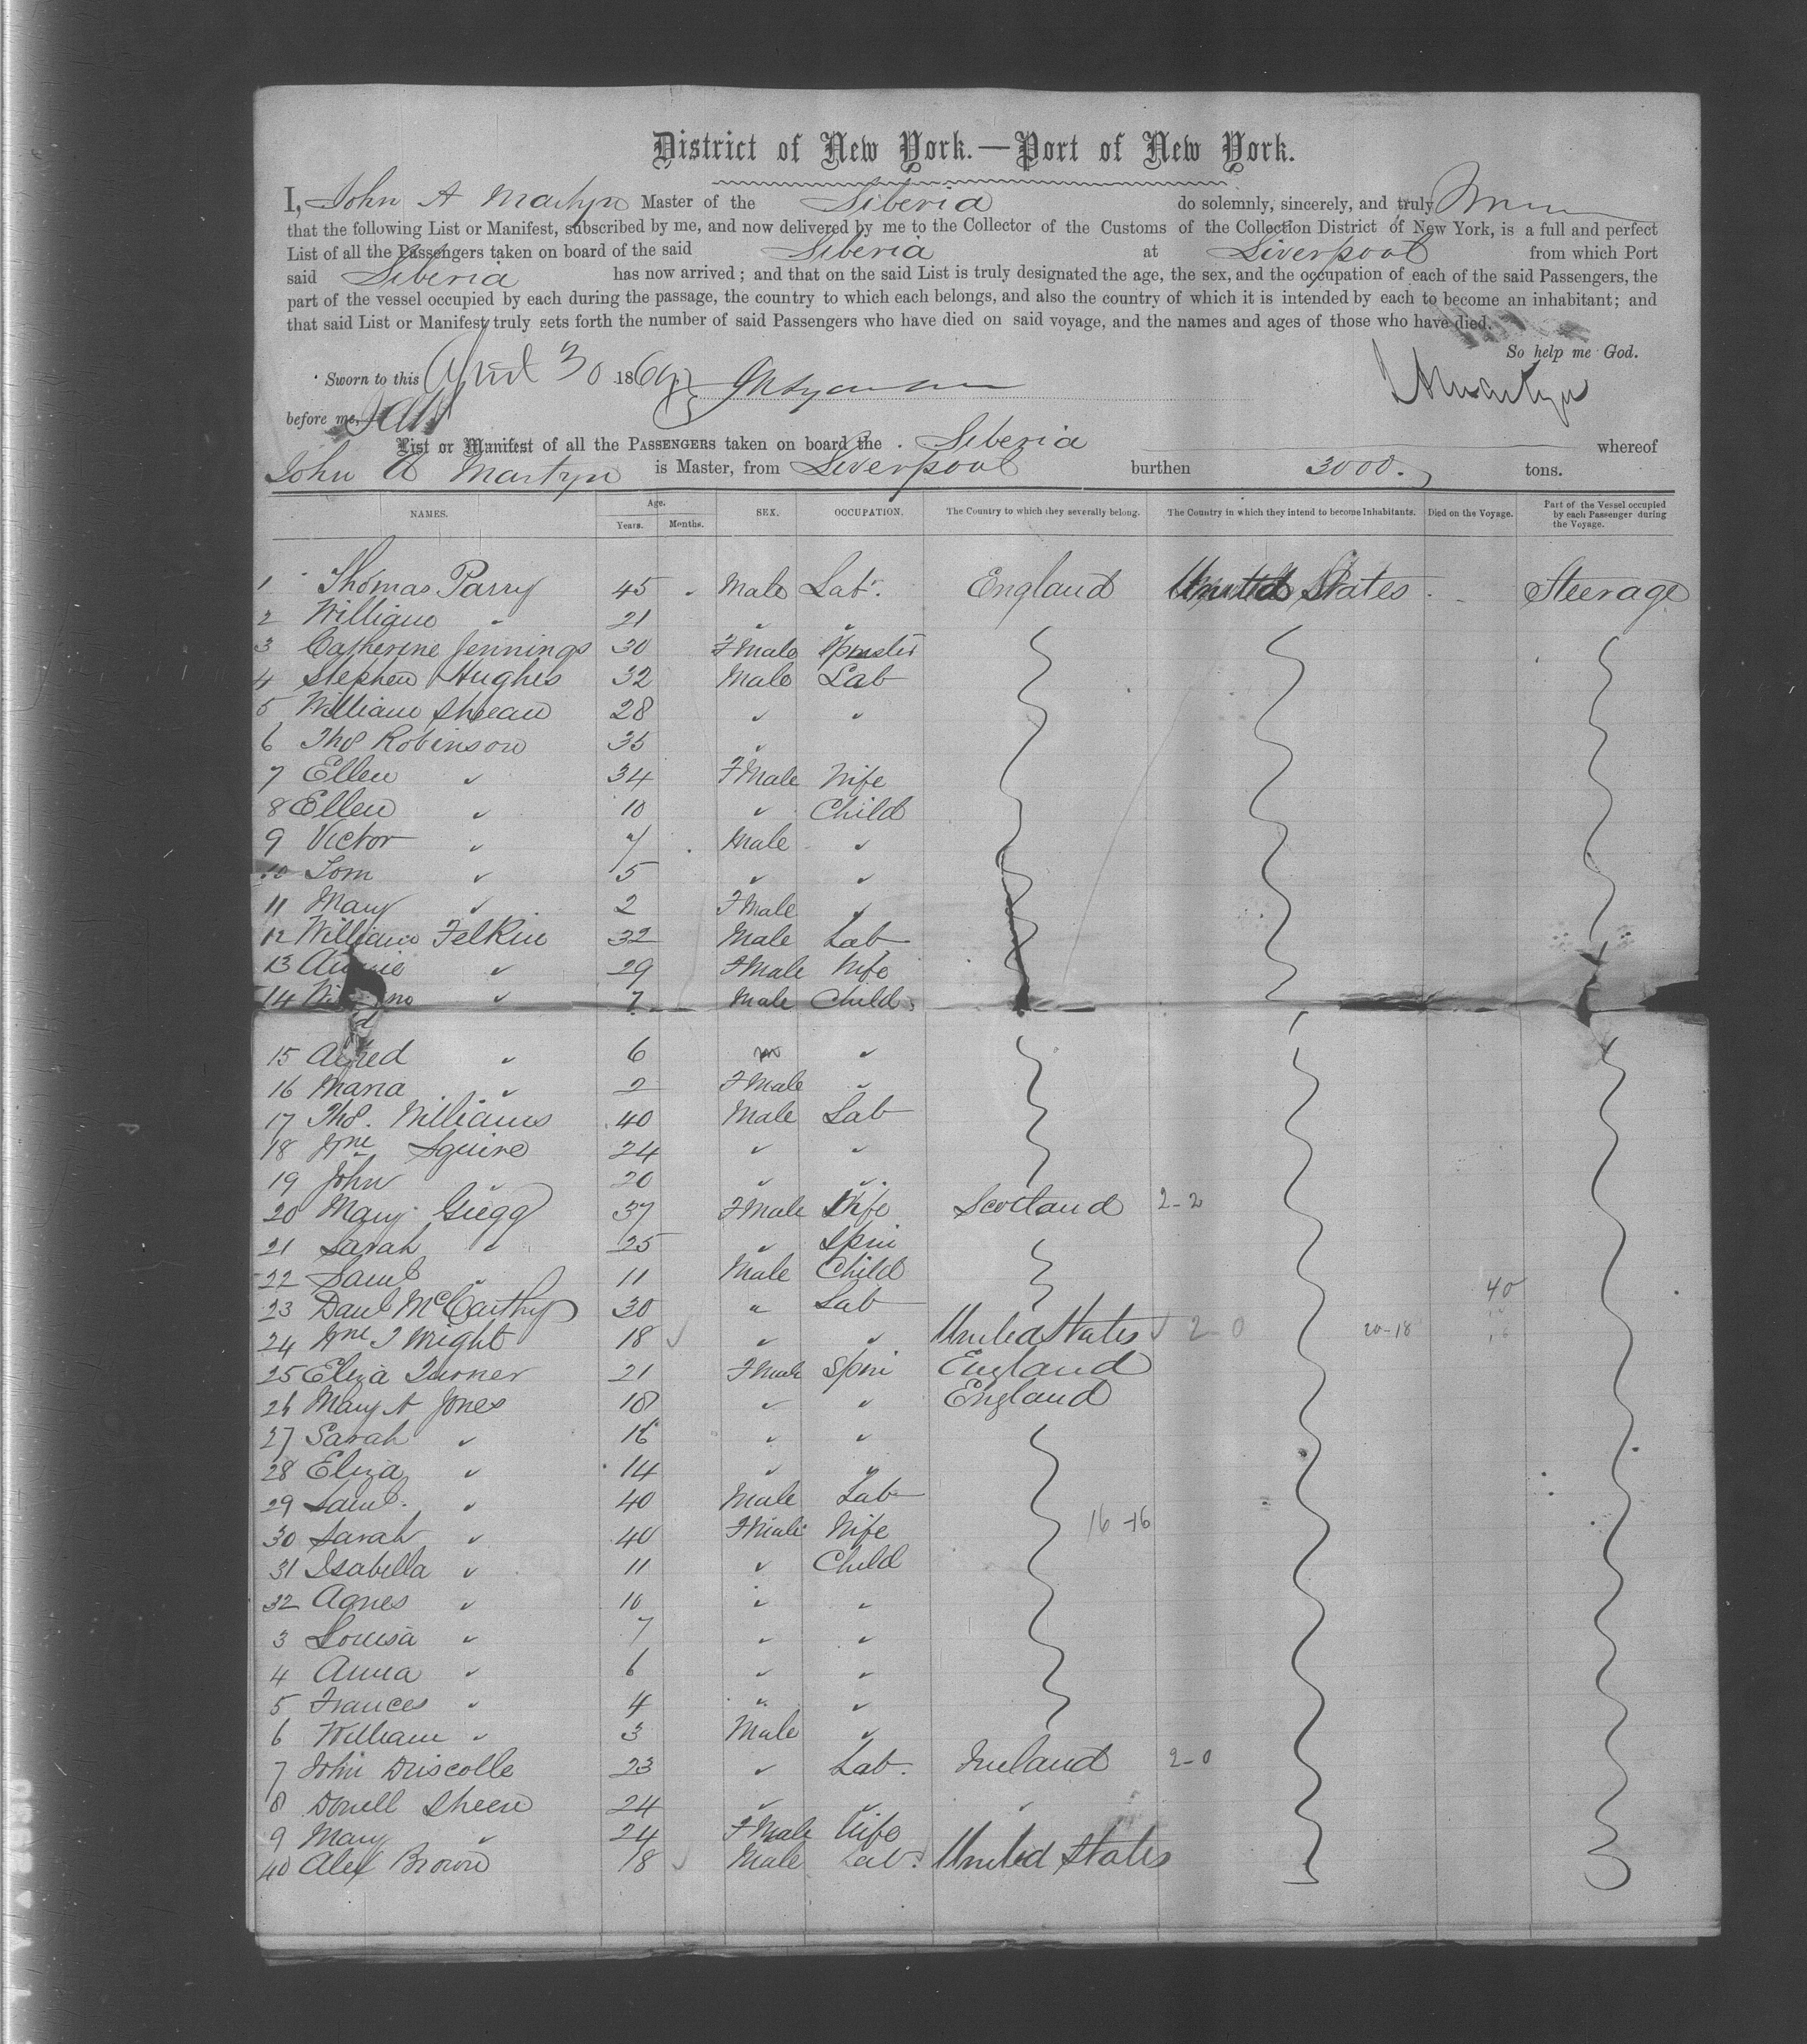 District of New York.—Port of New York.
I, John A Martyn Master of the Siberia do solemnly, sincerely, and truly
that the following List or Manifest, subscribed by me, and now delivered by me to the Collector of the Customs of the Collection District of New York, is a full and perfect
List of all the Passengers taken on board of the said Siberia at Liverpool from which Port
said Siberia has now arrived; and that on the said List is truly designated the age, the sex, and the occupation of each of the said Passengers, the
part of the vessel occupied by each during the passage, the country to which each belongs, and also the country of which it is intended by each to become an inhabitant; and
that said List or Manifest truly sets forth the number of said Passengers who have died on said voyage, and the names and ages of those who have died.
So help me God.
Sworn to this April 30 186
before me,
JAMartyn
List or Manifest of all the PASSENGERS taken on board the Siberia whereof
John A Martyn is Master, from Liverpool burthen 3000. tons.
NAMES. Age. Years. Months. SEX. OCCUPATION. The Country to which they severally belong. The Country in which they intend to become Inhabitants. Died on the Voyage. Part of the Vessel occupied by each Passenger during the Voyage.
1 Thomas Parry 45 Male Lab. England United States Steerage
2 William " 21 " "
3 Catherine Jennings 30 Fmale Spinster
4 Stephen Hughes 32 Male Lab
5 William Sheean 28 " "
6 Thos Robinson 35 "
7 Ellen " 34 FMale Wife
8 Ellen " 10 " Child
9 Victor " 7 Male "
10 Tom " 5 " "
11 Mary " 2 FMale "
12 William Felkin 32 Male Lab
13 Annie " 29 FMale Wife
14 " 7 Male Child
15 Alfred " 6 m "
16 Maria " 2 FMale "
17 Thos. Williams 40 Male Lab
18 Wm Squire 24 " "
19 John " 20 " "
20 Mary Gregg 37 FMale Wife Scotland 2-2
21 Sarah " 25 " Spin
22 Saml " 11 Male Child
23 Danl McCarthy 30 " Lab 40
24 Wm J Wright 18 " " United States 2-0 20-18
25 Eliza Turner 21 Fmale Spin England
26 Mary A Jones 18 " " England
27 Sarah " 16 " "
28 Eliza " 14 " "
29 Saml. " 40 Male Lab
30 Sarah " 40 FMale Wife 16-16
31 Isabella " 11 " Child
32 Agnes " 10 " "
3 Louisa " 7 " "
4 Anna " 6 " "
5 Frances " 4 " "
6 William " 3 Male "
7 John Driscolle 23 " Lab. Ireland 2-0
8 Donell Sheen 24 " " "
9 Mary " 24 FMale Wife
40 Alex Brown 18 Male Lab. United States